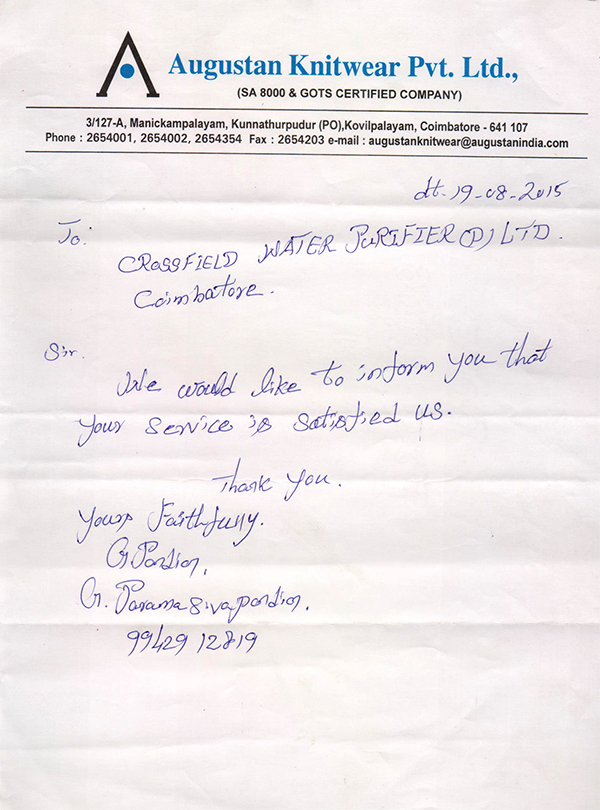 Augustan Knitwear Pvt. Ltd.,
(SA 8000 & GOTS CERTIFIED COMPANY)
3/127-A, Manickampalayam, Kunnathurpudur (PO),Kovilpalayam, Coimbatore - 641 107
Phone : 2654001, 2654002, 2654354 Fax : 2654203 e-mail : augustanknitwear@augustanindia.com
dt-19-08-2015
To.
CROSSFIELD WATER PURIFIER (P) LTD.
Coimbatore.
Sir.
We would like to inform you that
your service is satisfied us.
Thank you.
Yours Faithfully.
G. Pandian,
G. Paramasivapandian.
99429 12819